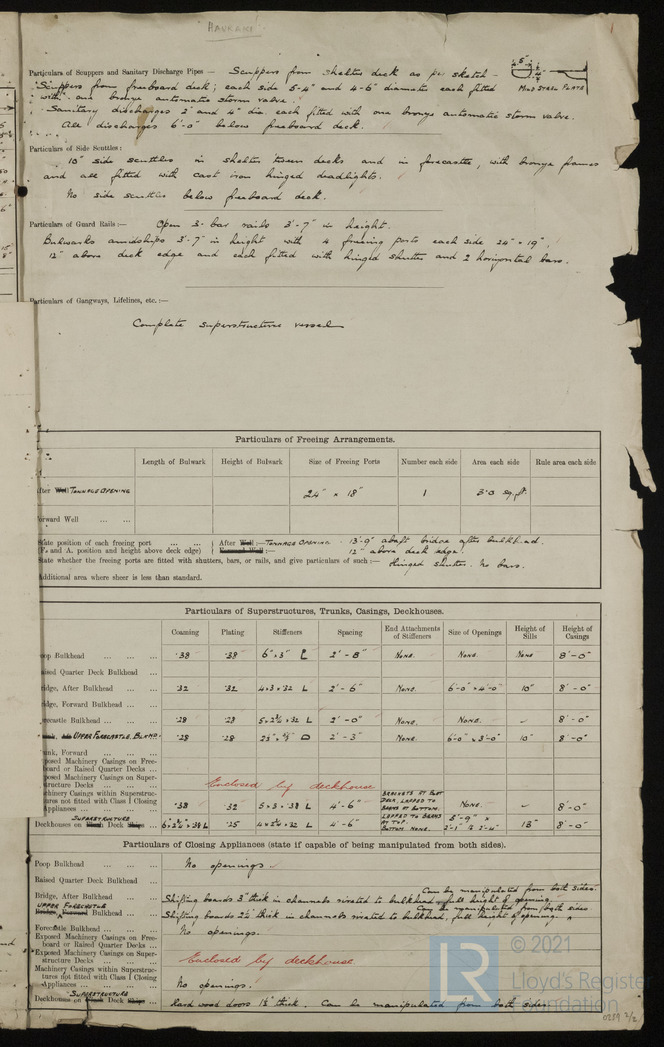 HAURAKI
Particulars of Scuppers and Sanitary Discharge Pipes — Scuppers from shelter deck as per sketch —
Scuppers from freeboard deck; each side 5-4" and 4-6" diameter each fitted
with one bronze automatic storm valve.
MILD STEEL PLATE
Sanitary discharges 2" and 4" dia. each fitted with one bronze automatic storm valve.
All discharges 6'-0" below freeboard deck.
Particulars of Side Scuttles:
10" side scuttles in shelter tween decks and in forecastle, with bronze frames
and all fitted with cast iron hinged deadlights.
No side scuttles below freeboard deck.
Particulars of Guard Rails:— Open 3-bar rails 3'-7" in height.
Bulwarks amidships 3'-7" in height with 4 freeing ports each side 24" × 19",
12" above deck edge and each fitted with hinged shutter and 2 horizontal bars.
Particulars of Gangways, Lifelines, etc.:—
Complete superstructure vessel
Particulars of Freeing Arrangements.
Length of Bulwark Height of Bulwark Size of Freeing Ports Number each side Area each side Rule area each side
After Well TONNAGE OPENING 24" × 18" 1 3·0 sq. ft.
Forward Well
State position of each freeing port After Well:— TONNAGE OPENING - 13'-9" abaft bridge after bulkhead.
(F. and A. position and height above deck edge) Forward Well:— 12" above deck edge.
State whether the freeing ports are fitted with shutters, bars, or rails, and give particulars of such:— Hinged shutter. No bars.
Additional area where sheer is less than standard.
Particulars of Superstructures, Trunks, Casings, Deckhouses.
Coaming Plating Stiffeners Spacing End Attachments of Stiffeners Size of Openings Height of Sills Height of Casings
Poop Bulkhead ·38 ·38 6" × 3" L 2'-8" NONE. NONE. NONE 8'-0"
Raised Quarter Deck Bulkhead
Bridge, After Bulkhead ·32 ·32 4×3×·32 L 2'-6" NONE. 6'-0" × 4'-0" 10" 8'-0"
Bridge, Forward Bulkhead
Forecastle Bulkhead ·28 ·28 L 2'-0" NONE. NONE. 8'-0"
UPPER FORECASTLE. BLKHD. ·28 ·28 2'-3" NONE. 6'-0" × 3'-0" 10" 8'-0"
Trunk, Forward
Exposed Machinery Casings on Freeboard or Raised Quarter Decks
Exposed Machinery Casings on Superstructure Decks Enclosed by deckhouse
Machinery Casings within Superstructures not fitted with Class I Closing Appliances ·38 ·32 5×3×·38 L 4'-6" BRACKETS AT 2ND DECK, LAPPED TO BEAMS AT BOTTOM. NONE. 8'-0"
Deckhouses on Flush Deck Ships SUPERSTRUCTURE ·25 L 4'-6" LAPPED TO BEAMS AT TOP. BOTTOM NONE. 5'-9" × 8'-0"
Particulars of Closing Appliances (state if capable of being manipulated from both sides).
Poop Bulkhead No openings
Raised Quarter Deck Bulkhead
Can be manipulated from both sides.
Bridge, After Bulkhead Shifting boards 3" thick in channels riveted to bulkhead, full height of opening.
Can be manipulated from both sides
UPPER FORECASTLE
Bridge, Forward Bulkhead Shifting boards 2½" thick in channels riveted to bulkhead, full height of opening.
Forecastle Bulkhead No openings.
Exposed Machinery Casings on Freeboard or Raised Quarter Decks
Exposed Machinery Casings on Superstructure Decks Enclosed by deckhouse
Machinery Casings within Superstructures not fitted with Class I Closing Appliances No openings.
SUPERSTRUCTURE
Deckhouses on Flush Deck Ships Hard wood doors thick. Can be manipulated from both sides
LR © 2021
Lloyd's Register
Foundation
0259 2/2